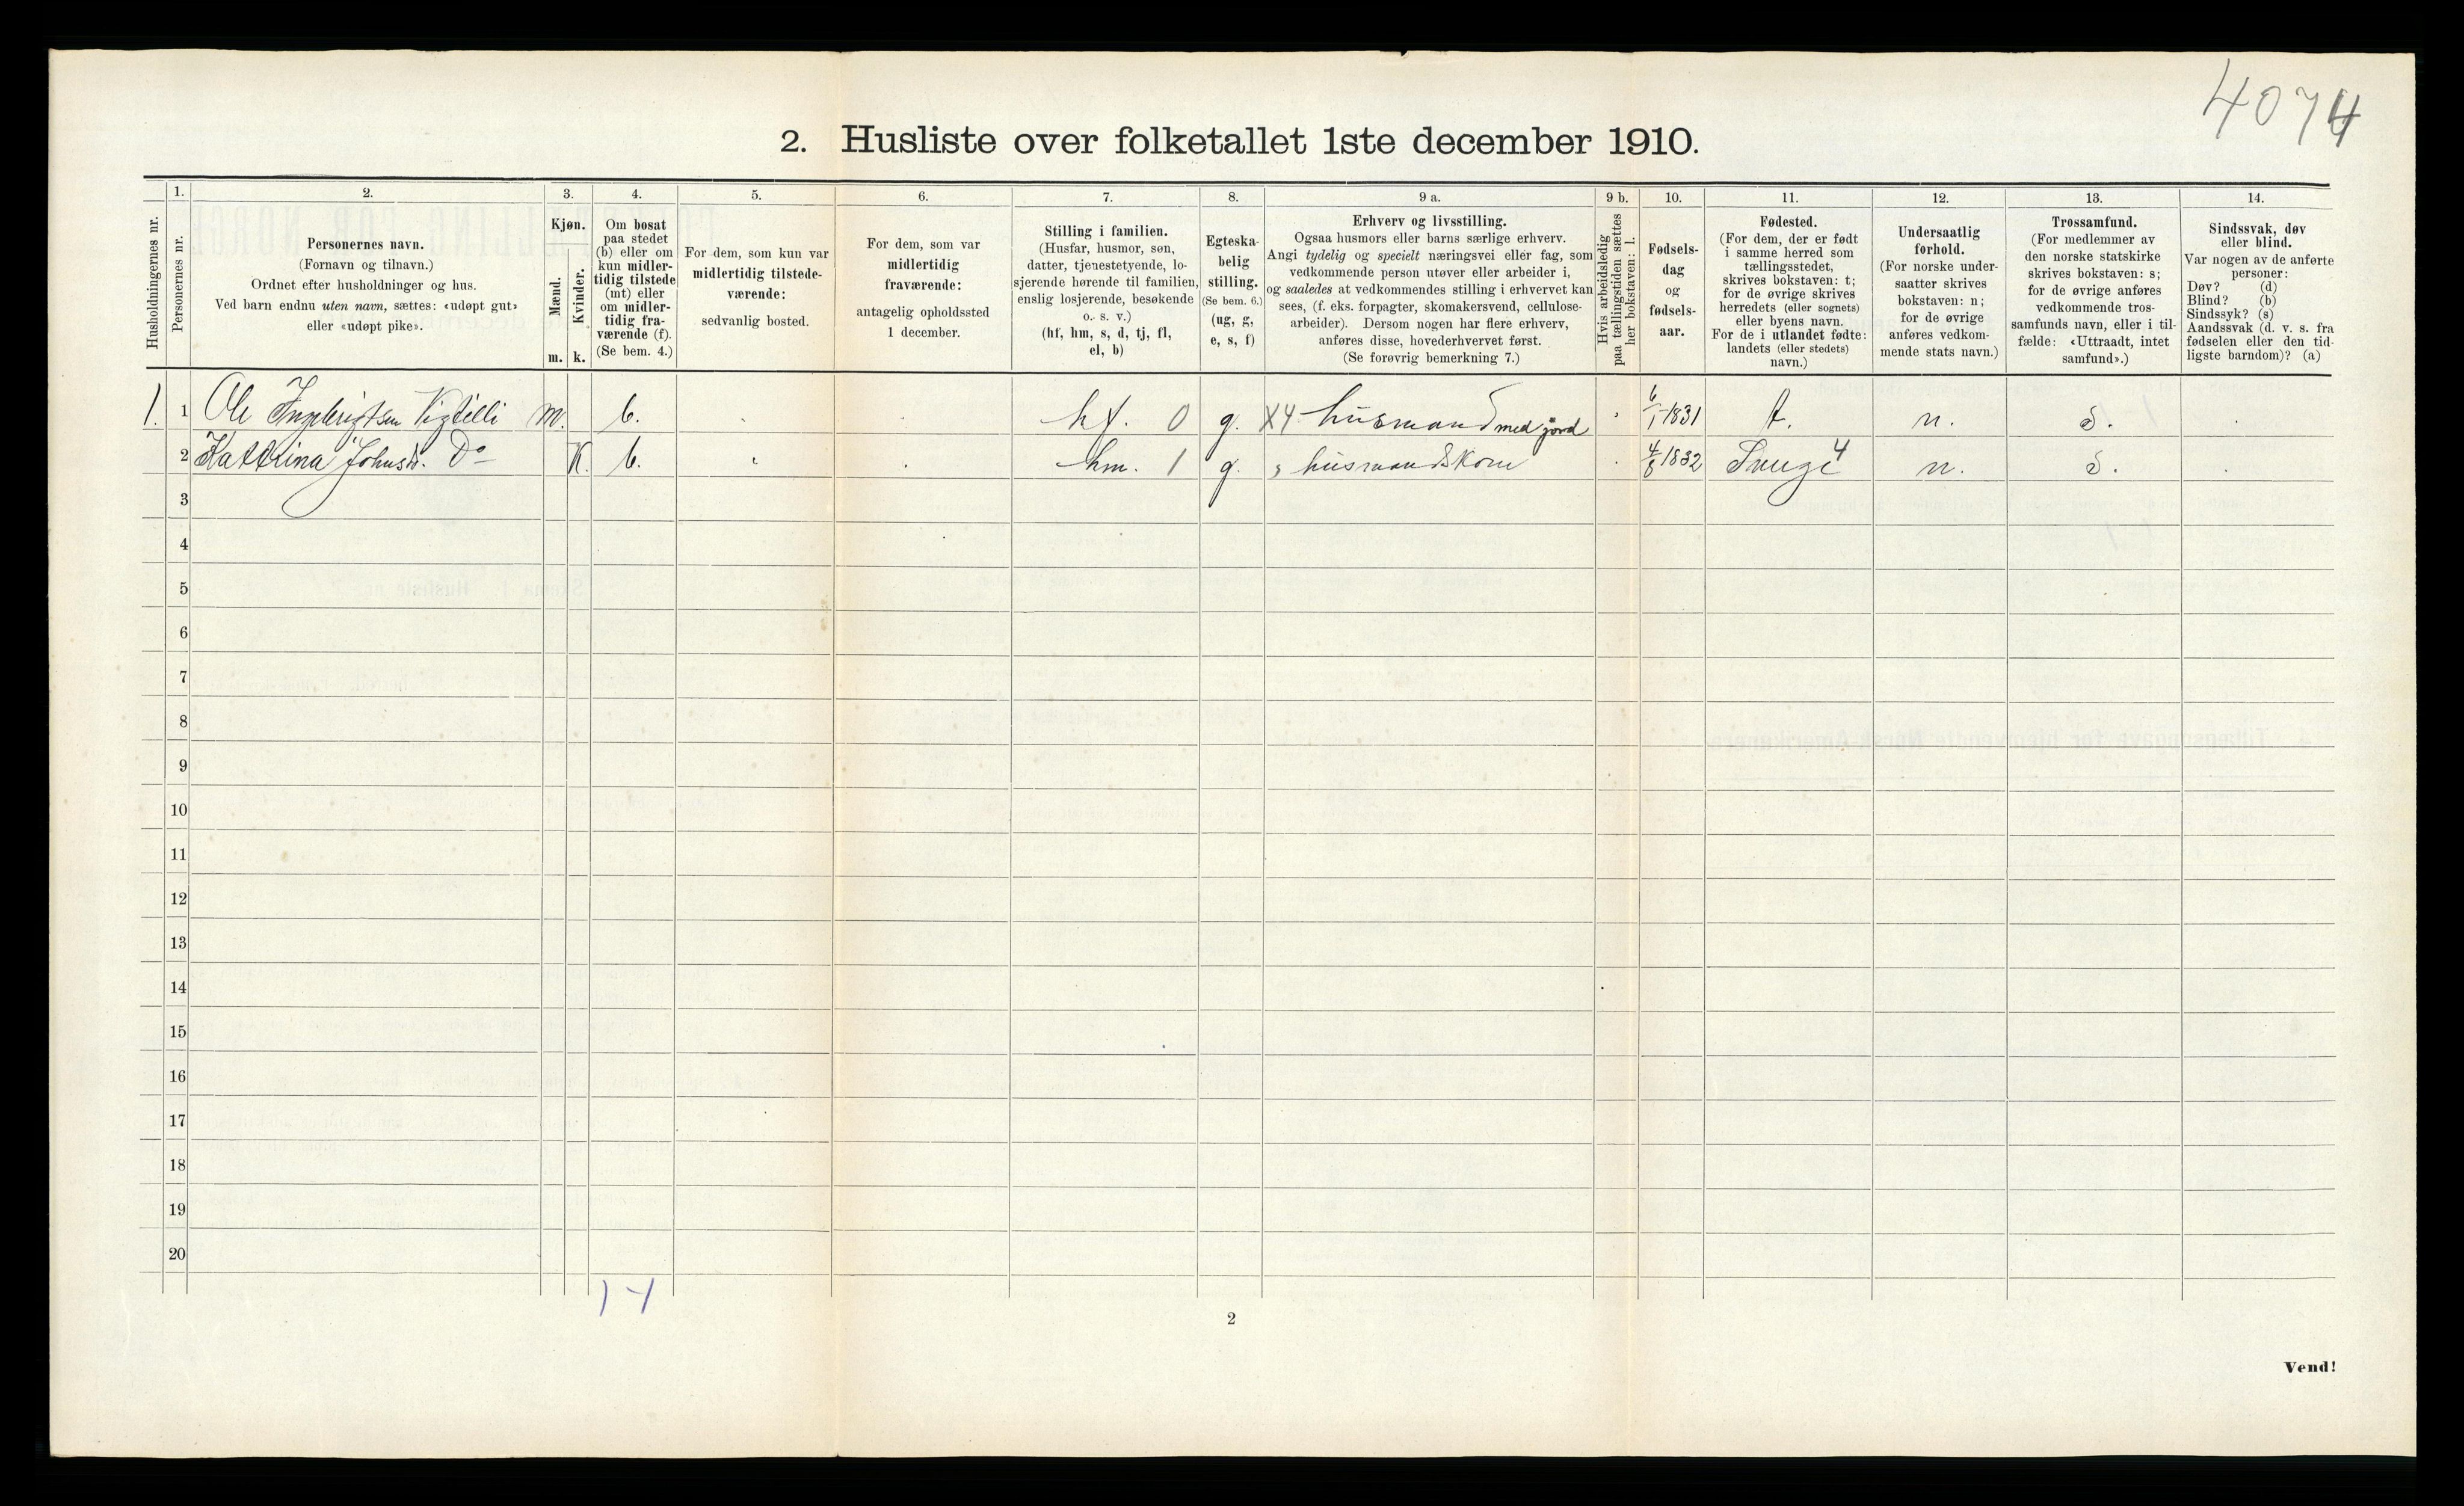 4074
2. Husliste over folketallet 1ste december 1910.
Husholdningernes nr.
1.
Personernes nr.
2.
Personernes navn.
(Fornavn og tilnavn.)
Ordnet efter husholdninger og hus.
Ved barn endnu uten navn, sættes: «udøpt gut»
eller «udøpt pike».
3.
Kjøn.
Mænd.
Kvinder.
m. k.
4.
Om bosat
paa stedet
(b) eller om
kun midler-
tidig tilstede
(mt) eller
om midler-
tidig fra-
værende (f).
(Se bem. 4.)
5.
For dem, som kun var
midlertidig tilstede-
værende:
sedvanlig bosted.
6.
For dem, som var
midlertidig
fraværende:
antagelig opholdssted
1 december.
7.
Stilling i familien.
(Husfar, husmor, søn,
datter, tjenestetyende, lo-
sjerende hørende til familien,
enslig losjerende, besøkende
o. s. v.)
(hf, hm, s, d, tj, fl,
el, b)
8.
Egteska-
belig
stilling.
(Se bem. 6.)
(ug, g,
e, s, f)
9 a.
Erhverv og livsstilling.
Ogsaa husmors eller barns særlige erhverv.
Angi tydelig og specielt næringsvei eller fag, som
vedkommende person utøver eller arbeider i,
og saaledes at vedkommendes stilling i erhvervet kan
sees, (f. eks. forpagter, skomakersvend, cellulose-
arbeider). Dersom nogen har flere erhverv,
anføres disse, hovederhvervet først.
(Se forøvrig bemerkning 7.)
9 b.
Hvis arbeidsledig
paa tællingstiden sættes
her bokstaven: l.
10.
Fødsels-
dag
og
fødsels-
aar.
11.
Fødested.
(For dem, der er født
i samme herred som
tællingsstedet,
skrives bokstaven: t;
for de øvrige skrives
herredets (eller sognets)
eller byens navn.
For de i utlandet fødte:
landets (eller stedets)
navn.)
12.
Undersaatlig
forhold.
(For norske under-
saatter skrives
bokstaven: n;
for de øvrige
anføres vedkom-
mende stats navn.)
13.
Trossamfund.
(For medlemmer av
den norske statskirke
skrives bokstaven: s;
for de øvrige anføres
vedkommende tros-
samfunds navn, eller i til-
fælde: «Uttraadt, intet
samfund».)
14.
Sindssvak, døv
eller blind.
Var nogen av de anførte
personer:
Døv? (d)
Blind? (b)
Sindssyk? (s)
Aandssvak (d. v. s. fra
fødselen eller den tid-
ligste barndom)? (a)
1. 1 Ole Ingebrigtsen m. b. hf. 0 g. X4 husmand med jord 1831 t. n. s.
2 Kathrina Johnsd. Do K. b. hm. 1 g. " husmandskone 4/8 1832 4 n. s.
3
4
5
6
7
8
9
10
11
12
13
14
15
16
17
18
19
20
2
Vend!